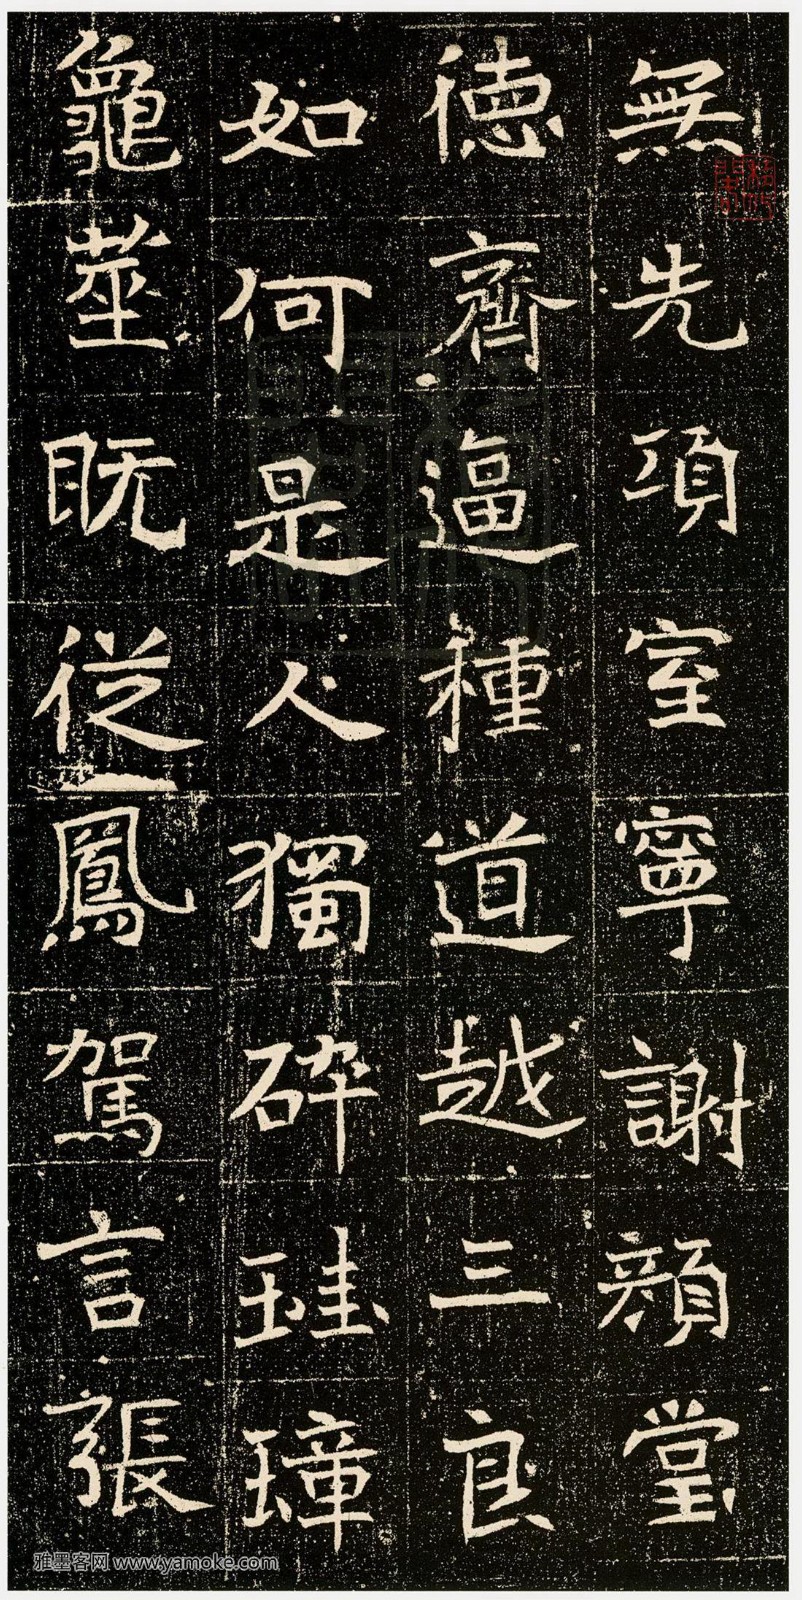 無先項室寧謝顔堂
德齊逼種道越三良
如何是人獨碎珪璋
龜筮既從鳳駕言張
雅墨客网 www.yamoke.com